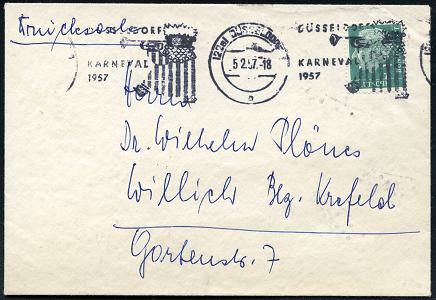 Drucksache
DÜSSELDORF
KARNEVAL
1957
(22a) DÜSSELDORF
5.2.57.-18
DÜSSELDORF
KARNEVAL
1957
Herrn
Dr. Wilhelm Plönes
Willich Bez. Krefeld
Gartenstr. 7